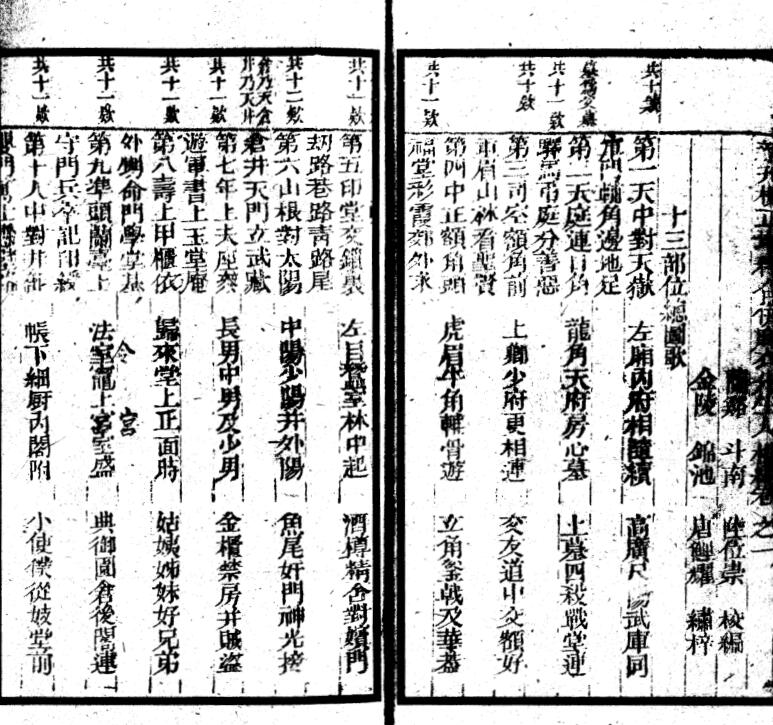 卷之一
蘭谿 斗南 陸位崇 校編
金陵 錦池 唐鯉耀 繡梓
十三部位總圖歌
第一天中對天獄 左廂內府相隨續 高廣尺陽武庫同
軍門 角邊地足
第二天庭連日角 龍角天府房心墓 上墓四殺戰堂連
驛馬弔庭分善惡
第三司空額角前 上卿少府更相連 交友道中交額好
重眉山林看聖賢
第四中正額角頭 虎眉牛角輔骨遊 立角 戟及華蓋
福堂彩霞郊外求
共十一欵
共十欵
共十一欵
第五印堂交鎖裏 左目蠶室林中起 酒樽精舍對嬪門
劫路巷路青路尾
第六山根對太陽 中陽少陽并外陽 魚尾奸門神光接
倉井天門立武藏
第七年上夫座參 長男中男及少男 金櫃禁房并賊盜
遊軍書上玉堂庵
第八壽上甲櫃依 歸來堂上正面時 姑姨姊妹好兄弟
外甥命門學堂基
第九準頭蘭臺上 法令竈上宮室盛 典御園倉後閣連
守門兵卒記印綬
第十人中對井部 帳下細廚內閣附 小使僕從妓堂前
共十一欵
共十二欵
倉乃天倉
井乃天井
共十一欵
共十一欵
共十一欵
共十一欵